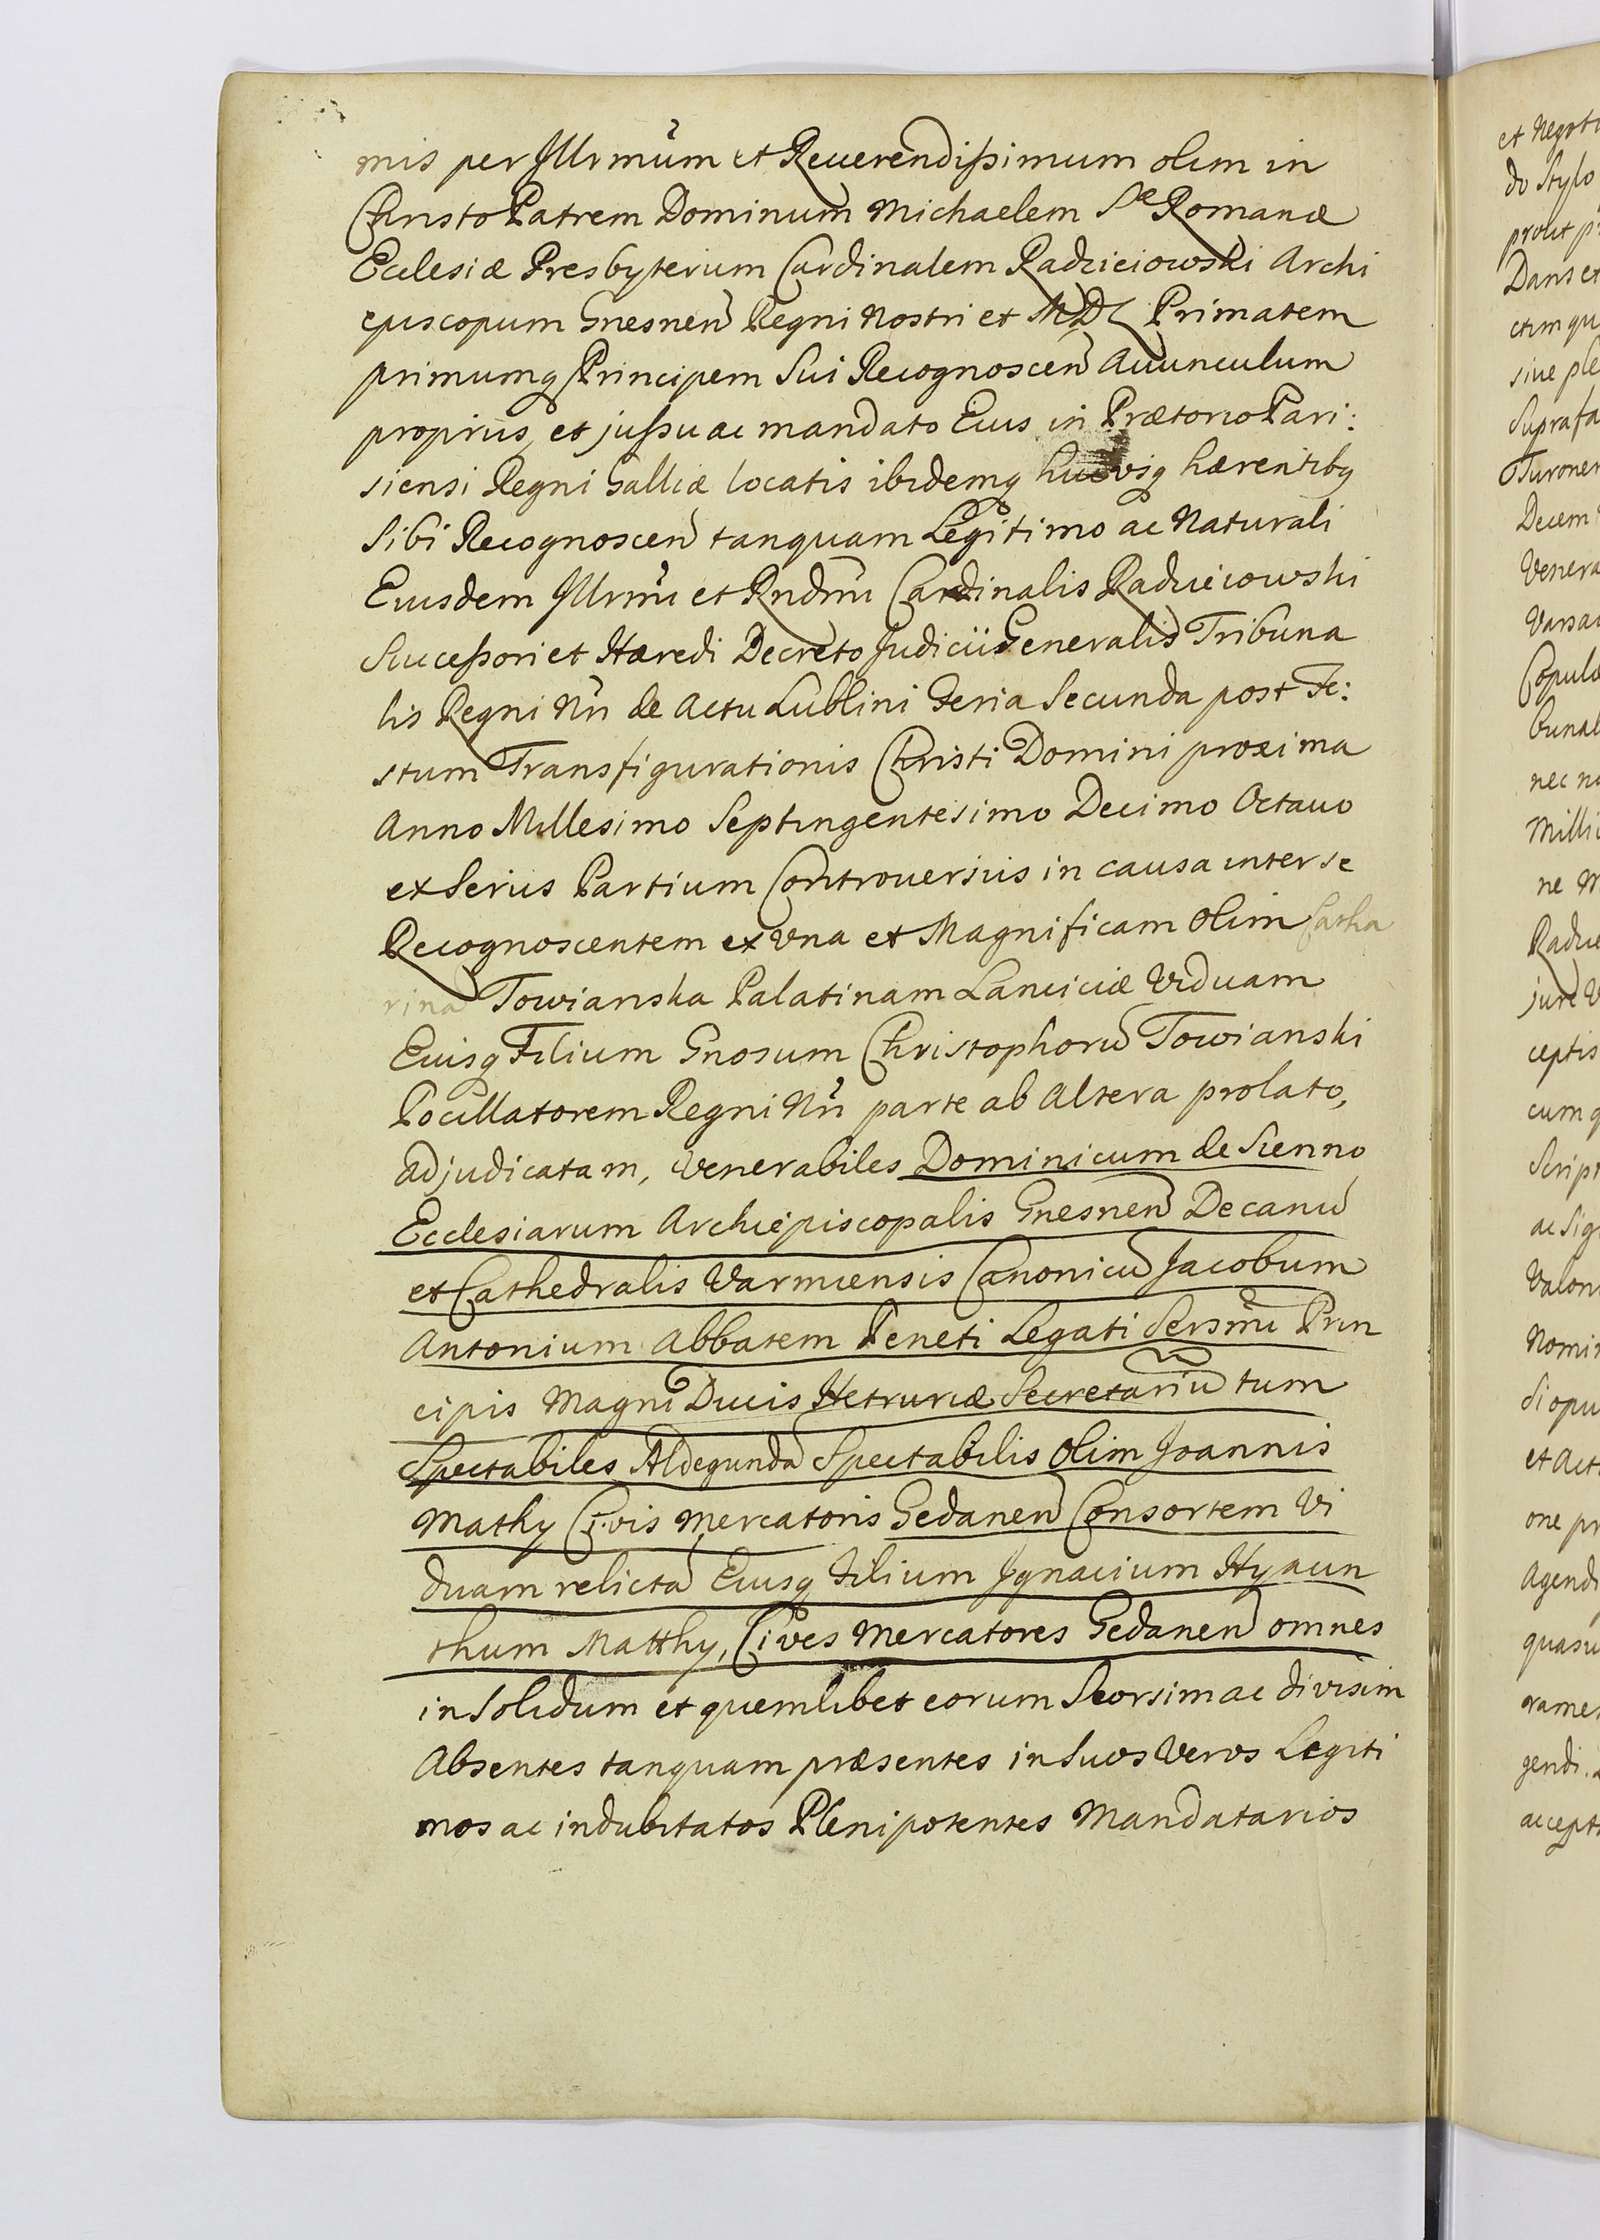 mis per Illrmum et Reuerendissimum olim in
Christo Patrem Dominum Michaelem Sæ Romanæ
Ecclesiæ Presbyterum Cardinalem Radzieiowski Archi
episcopum Gnesnen Regni Nostri et M D L Primatem
primumq Principem Sui Recognoscen Auunculum
proprius, et jussu ac mandato Eius in Prætorio Pari:
siensi Regni Galliæ locatis ibidemq hucvsq hærentibq
Sibi Recognoscen tanquam Legitimo ac Naturali
Eiusdem Illrmi et Rndmi Cardinalis Radzieiowski
Successori et Hæredi Decreto Judicii Generalis Tribuna
lis Regni Nri de Actu Lublini Feria Secunda post Fe:
stum Transfigurationis Christi Domini proxima
Anno Millesimo Septingentesimo Decimo Octauo
ex Serius Partium Controuersiis in causa inter se
Recognoscentem ex Vna et Magnificam Olim Catha
rina Towianska Palatinam Lanciciæ Viduam
Euisq Filium Gnosum Christophorū Towianski
Pocillatorem Regni Nri parte ab Altera prolato,
adjudicatam, Venerabiles Dominicum de Sienno
Ecclesiarum Archiepiscopalis Gnesnen Decanū
et Cathedralis Varmiensis Canonicū Jacobum
Antonium Abbatem Peneti Legati Sersmi Prin
cipis Magni Ducis Hetruriæ Secretariū tum
Spectabiles Aldegundā Spectabilis Olim Joannis
Mathy Civis Mercatoris Gedanen Consortem Vi
duam relictā Eiusq Filium Ignacium Hyacin
thum Matthy, Cives Mercatores Gedanen omnes
in Solidum et quemlibet eorum Seorsim ac divisim
Absentes tanquam præsentes in Suos Veros Legiti
mos ac indubitatos Plenipotentes Mandatarios